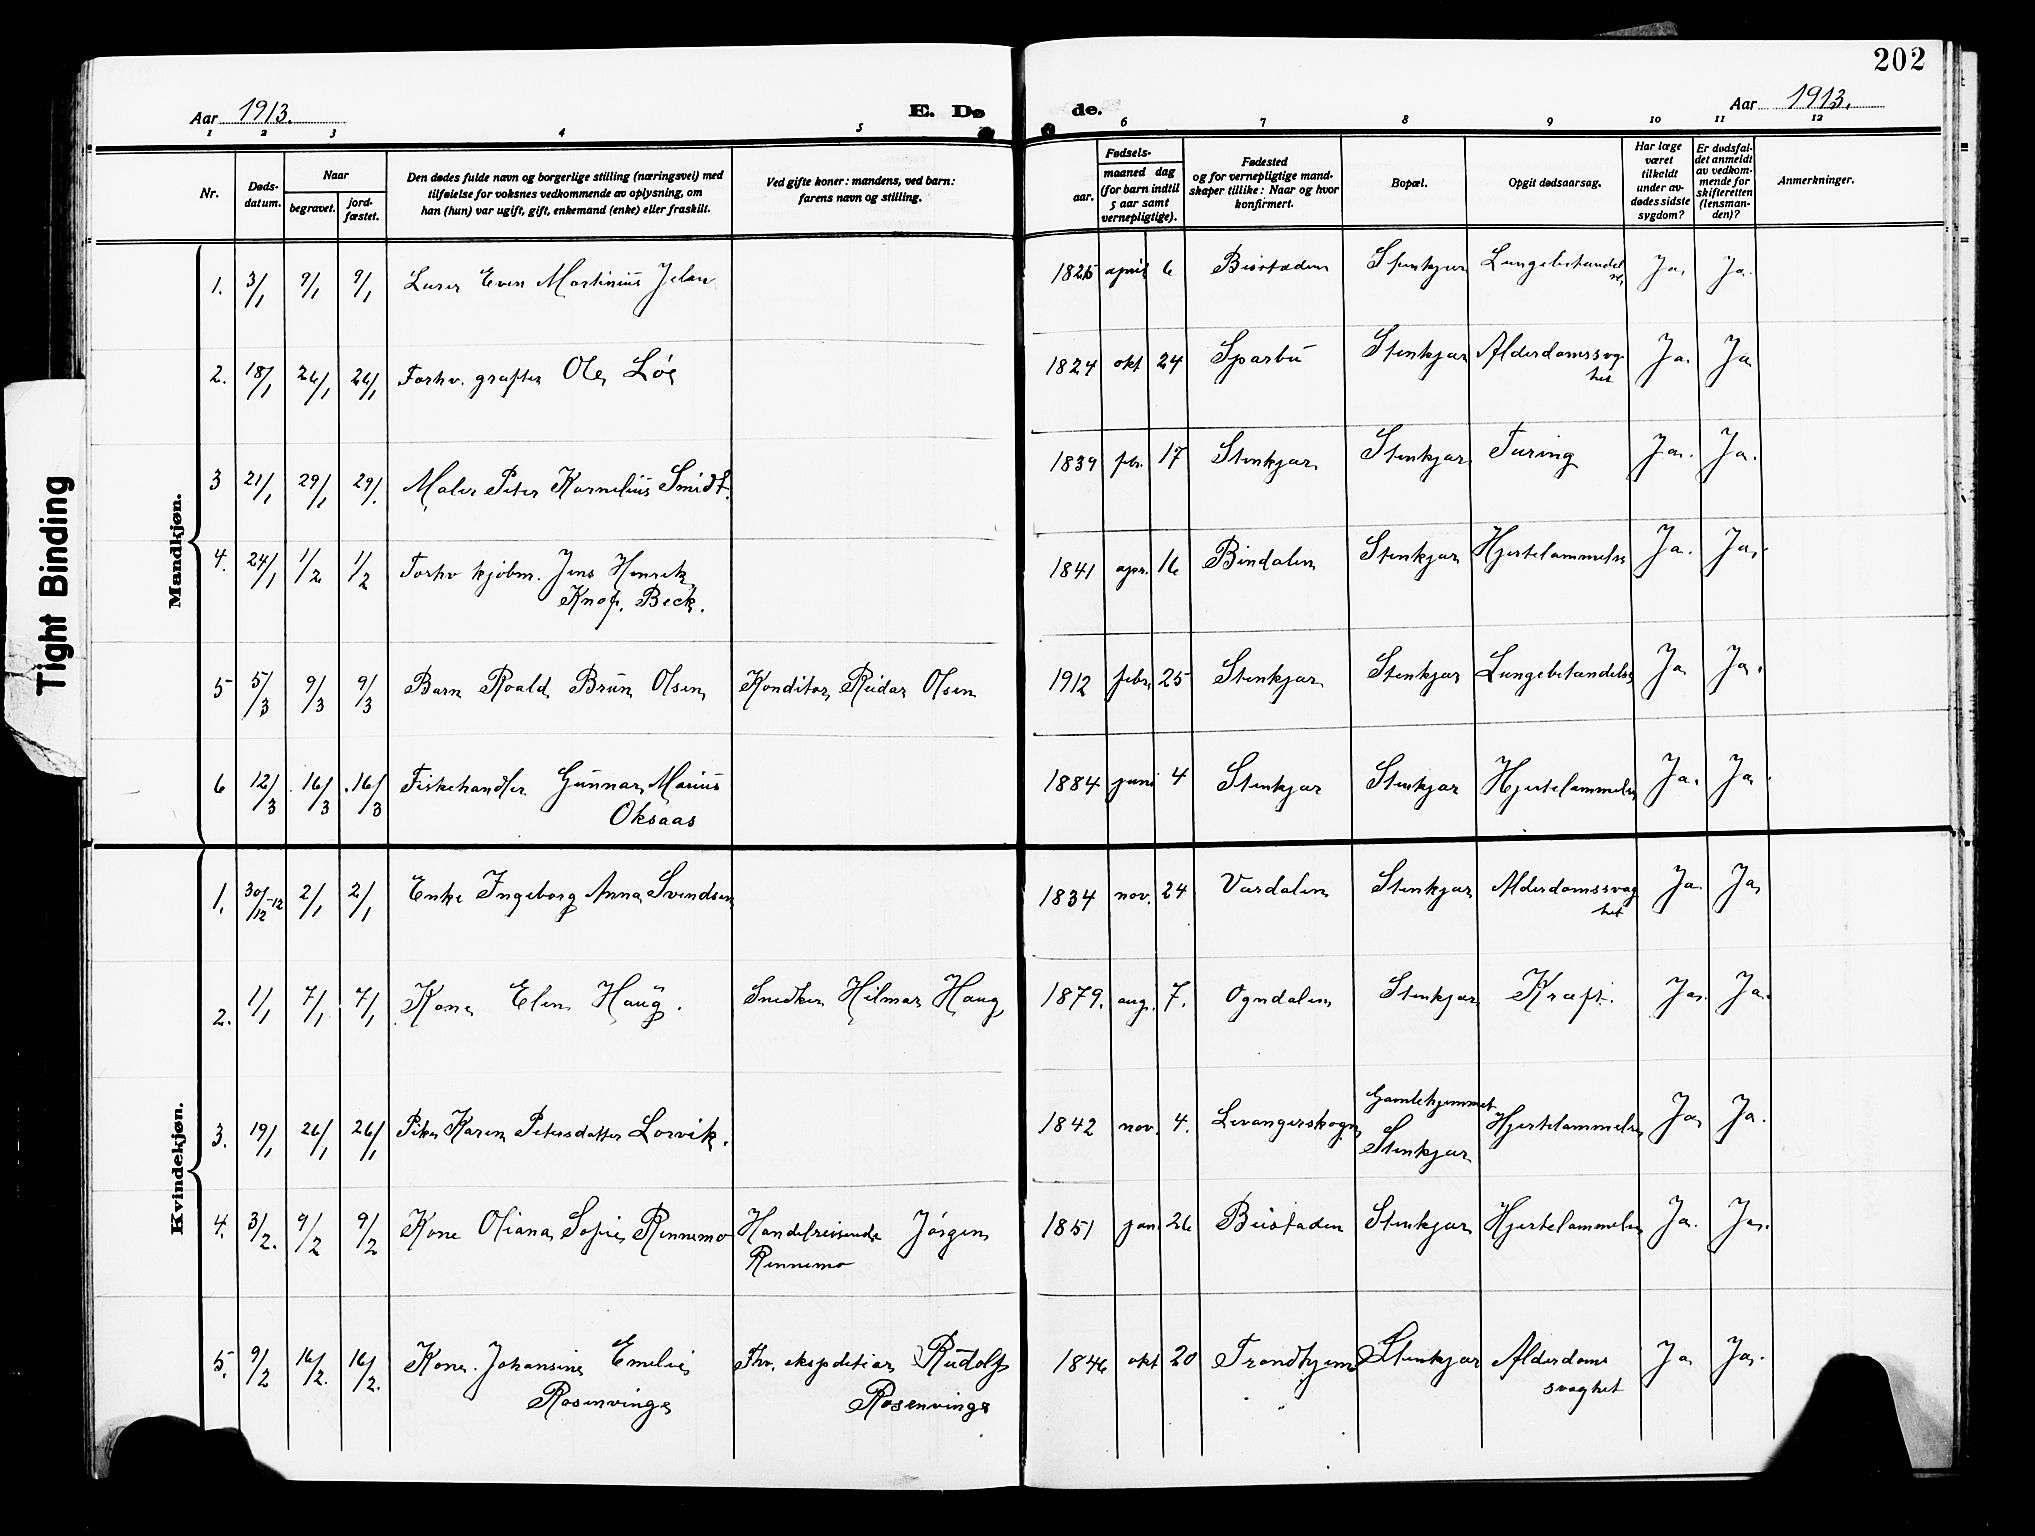 202
Aar 1913.
E. Dø
de.
Aar 1913.
1 2 3 4 5
6 7 8 9 10 11 12
Nr.
Døds-
datum.
Naar
begravet.
jord-
fæstet.
Den dødes fulde navn og borgerlige stilling (næringsvei) med
tilføielse for voksnes vedkommende av oplysning, om
han (hun) var ugift, gift, enkemand (enke) eller fraskilt.
Ved gifte koner: mandens, ved barn:
farens navn og stilling.
Fødsels-
aar.
maaned dag
(for barn indtil
5 aar samt
vernepligtige).
Fødested
og for vernepligtige mand-
skaper tillike: Naar og hvor
konfirmert.
Bopæl.
Opgit dødsaarsag.
Har læge
været
tilkaldt
under av-
dødes sidste
sygdom?
Er dødsfal-
det anmeldt
av vedkom-
mende for
skifteretten
(lensman-
den)?
Anmerkninger.
Tight Binding
Mandkjøn.
1. 3/1 9/1 9/1 Lærer Even Martinius Jelan 1825 april 6 Beistaden Stenkjær Lungebetændel
se Ja. Ja.
2. 18/1 26/1 26/1 Forhv. grafter Ole Løe 1824 okt 24 Sparbu Stenkjær Alderdomssvag-
het Ja. Ja
3 21/1 29/1 29/1 Maler Peter Kornelius Smidt. 1839 febr. 17 Stenkjær Stenkjær Tæring Ja. Ja.
4. 24/1 1/2 1/2 Forhv kjøbm. Jens Henrik
Knof. Beck. 1841 apr. 16 Bindalen Stenkjær Hjertelammelse Ja. Ja.
5 5/3 9/3 9/3 Barn Roald Brun Olsen Konditor Reidar Olsen 1912 febr 25 Stenkjær Stenkjær Lungebetændelse Ja Ja.
6 12/3 16/3 16/3 Fiskehandler Gunnar Marius
Oksaas 1884 juni 4 Stenkjær Stenkjær Hjertelammelse Ja. Ja.
Kvindekjøn.
1. 30/12-12 2/1 2/1 Enke Ingeborg Anna Svendsen 1834 nov. 24 Værdalen Stenkjær Alderdomssvag
het Ja. Ja
2. 1/1 7/1 7/1 Kone Elen Haug. Snedker Hilmar Haug 1879. aug. 7. Ogndalen Stenkjær Kræft. Ja. Ja.
3. 19/1 26/1 26/1 Pike Karen Petersdatter Lorvik. 1842 nov. 4. Levangerskogen Gamlehjemmet
Stenkjær Hjertelammelse Ja Ja.
4. 3/2. 9/2 9/2 Kone Oliana Sofie Rennemo Handelsreisende Jørgen
Rennemo 1851 jan 26 Beistaden Stenkjær Hjertelammelse Ja. Ja.
5. 9/2 16/2. 16/2. Kone. Johansine Emelie
Rosenvinge Fhv. ekspeditiør Rudolf
Rosenvinge 1846 okt 20 Trondhjem Stenkjær Alderdoms
svaghet Ja Ja.